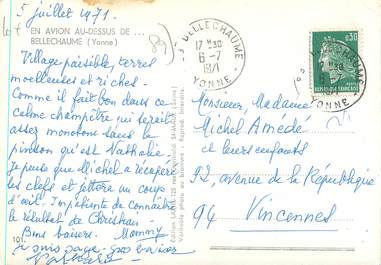 5 juillet 1971.
EN AVION AU-DESSUS DE ...
BELLECHAUME (Yonne)
Village paisible, terres
moelleuses et riches.
Comme il fait bon dans ce
calme champêtre qui serait
assez monotone sans le
pinson qu'est Nathalie.
Je pense que Michel a récupéré
les clefs et jettera un coup
d'œil. Impatiente de connaître
le résultat de Christian.
Bons baisers. Mammy
je suis sage - gros baisers
Nathalie
101
BELLECHAUME
17 H30
6-7
1971
YONNE
0,30
REPUBLIQUE FRANÇAISE
Monsieur, Madame
Michel Amédé
et leurs enfants
92, avenue de la République
94 Vincennes